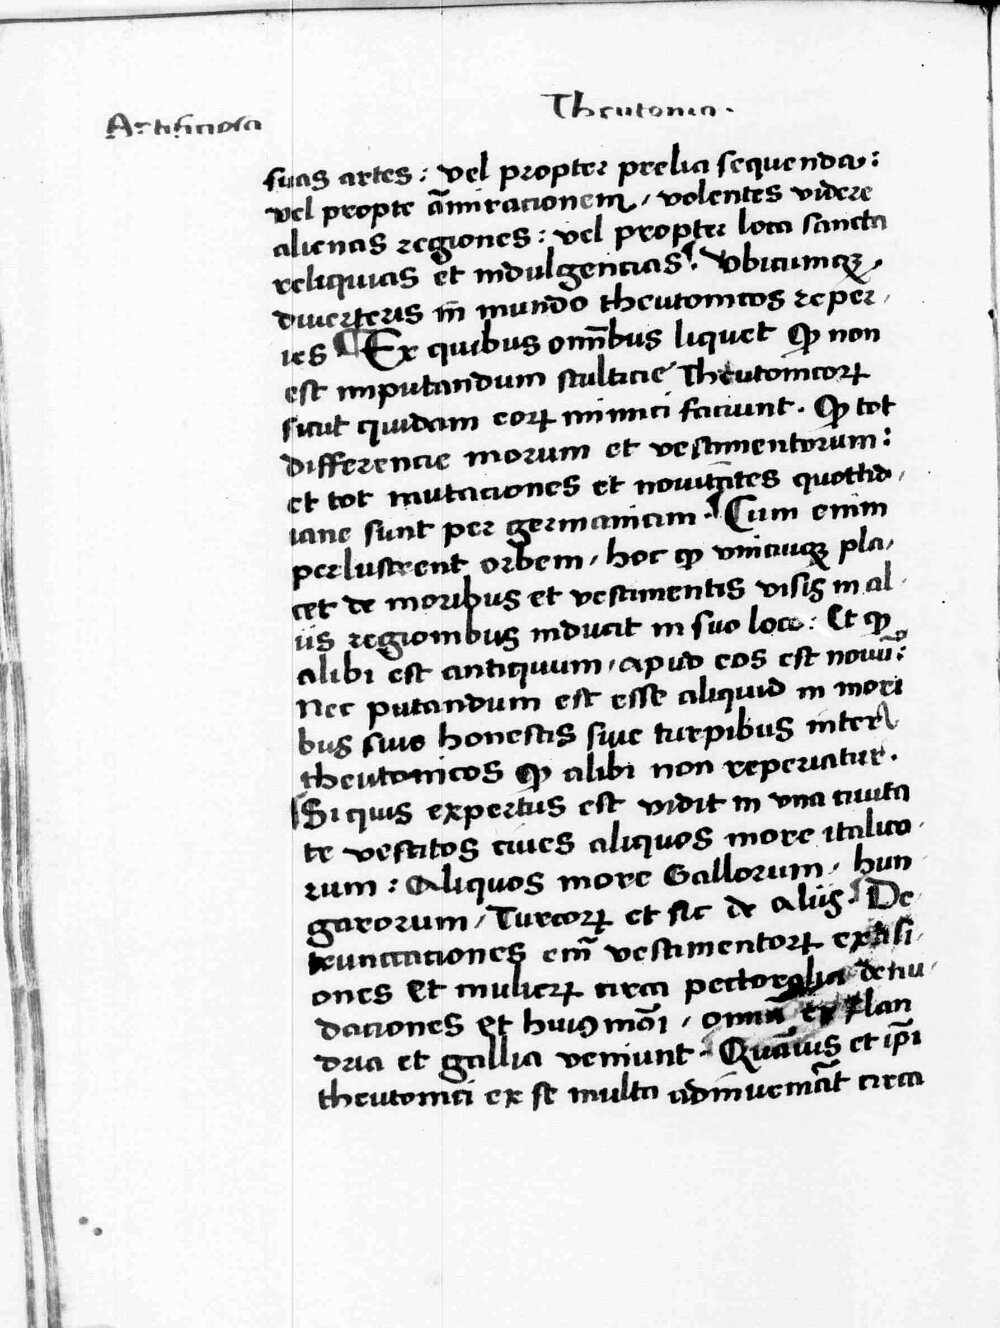 Theutonia.
Artificiosa
suas artes: vel propter prelia sequenda:
vel propte am̄iracionem, volentes videre
alienas regiones: vel propter loca sancta
reliquias et indulgencias. Vbicumqꝫ
diuerteris in̄ mundo theutonicos reper,
ies ¶ Ex quibus om̄ibus liquet ꝙ non
est imputandum stulticie Theutonicoꝝ
sicut quidam eoꝝ inimici faciunt. ꝙ tot
differencie morum et vestimentorum:
et tot mutaciones et nouitates quottid,
iane sunt per germaniam. Cum enim
perlustrent orbem, hoc ꝙ vnicuiqꝫ pla,
cet de moribus et vestimentis visis in al,
iis regionibus inducit in suo loco: Et ꝙ
alibi est antiquum, apud eos est nouū:
Nec putandum est esse aliquid in mori
bus siue honestis siue turpibus inter
theutonicos ꝙ alibi non reperiatur.
Si quis expertus est vidit in vna ciuita
te vestitos ciues aliquos more italico,
rum: Aliquos more Gallorum, hun
garorum, Turcoꝝ et sic de aliis. De
truncaciones em̄ vestimentoꝝ exsisi,
ones Et mulieꝝ circa pectoralia denu,
daciones Et huiꝯmōi, omnia ex flan
dria et gallia veniunt. Quāuis et ip̄i
theutonici ex se multa adinueniāt circa